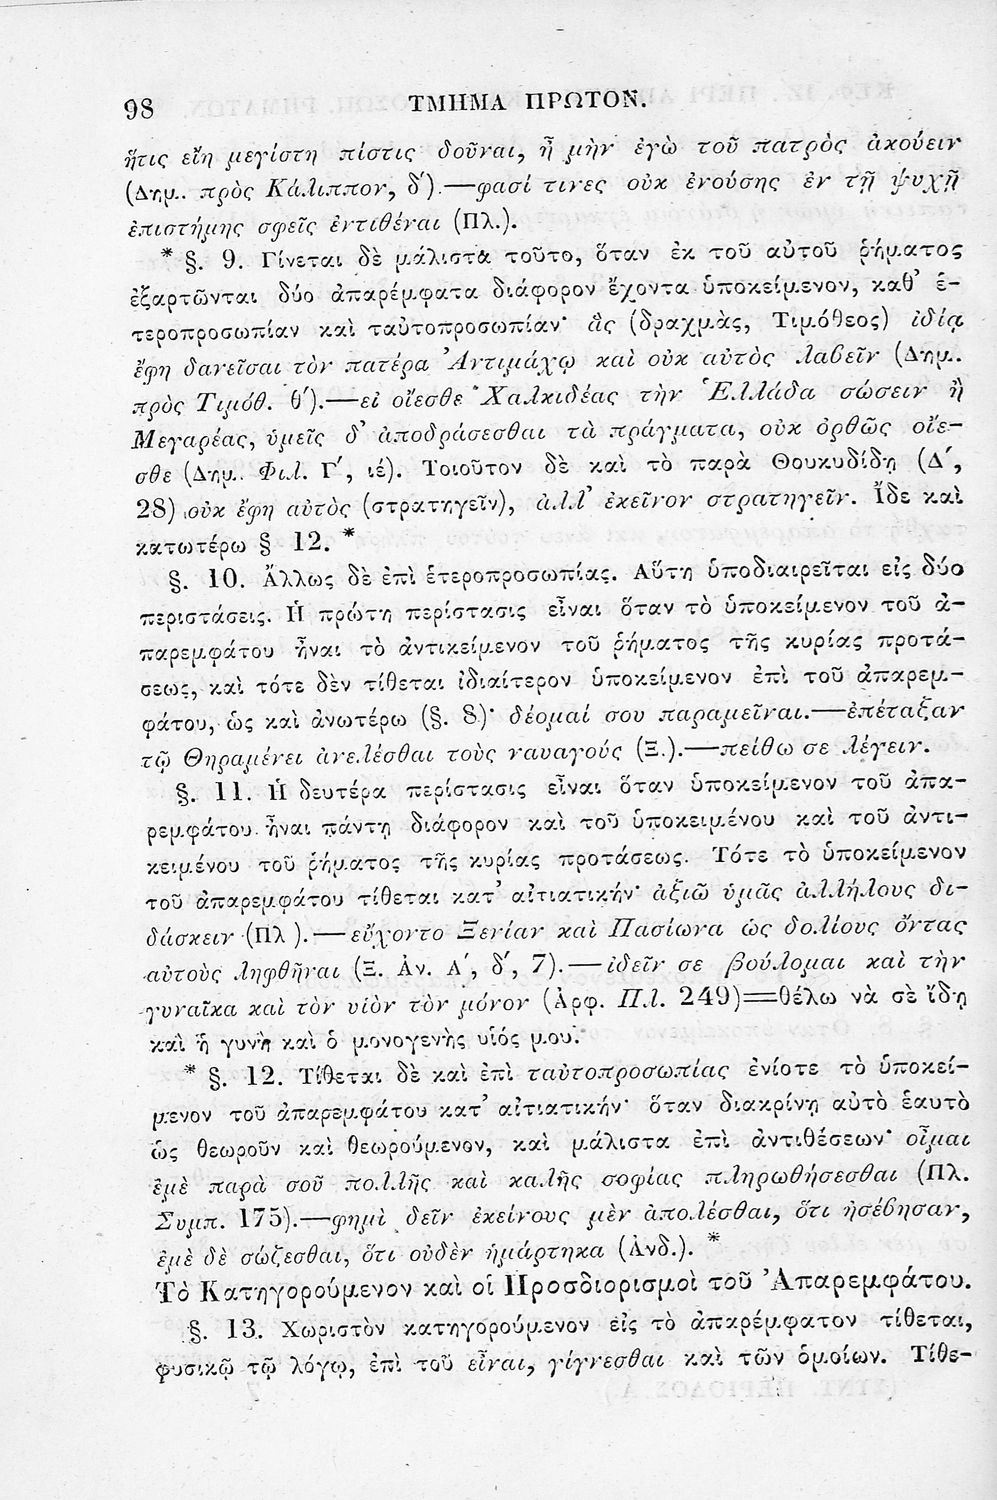 98 ΤΜΗΜΑ ΠΡΩΤΟΝ.
ἥτις εἴη μεγίστη πίστις δοῦναι, ἦ μὴν ἐγὼ τοῦ πατρὸς ἀκούειν
(Δημ. πρὸς Κάλιππον, δ´).—φασί τινες οὐκ ἐνούσης ἐν τῇ ψυχῇ
ἐπιστήμης σφεῖς ἐντιθέναι (Πλ.).
* §. 9. Γίνεται δὲ μάλιστα τοῦτο, ὅταν ἐκ τοῦ αὐτοῦ ῥήματος
ἐξαρτῶνται δύο ἀπαρέμφατα διάφορον ἔχοντα ὑποκείμενον, καθ᾽ ἑ-
τεροπροσωπίαν καὶ ταὐτοπροσωπίαν· ἃς (δραχμὰς, Τιμόθεος) ἰδίᾳ
ἔφη δανεῖσαι τὸν πατέρα Ἀντιμάχῳ καὶ οὐκ αὐτὸς λαβεῖν (Δημ.
πρὸς Τιμόθ. θ´).—εἰ οἴεσθε Χαλκιδέας τὴν Ἑλλάδα σώσειν ἢ
Μεγαρέας, ὑμεῖς δ᾽ ἀποδράσεσθαι τὰ πράγματα, οὐκ ὀρθῶς οἴε-
σθε (Δημ. Φιλ. Γ´, ιέ). Τοιοῦτον δὲ καὶ τὸ παρὰ Θουκυδίδῃ (Δ´,
28) οὐκ ἔφη αὐτὸς (στρατηγεῖν), ἀλλ᾽ ἐκεῖνον στρατηγεῖν. Ἴδε καὶ
κατωτέρω § 12. *
§. 10. Ἄλλως δὲ ἐπὶ ἑτεροπροσωπίας. Αὕτη ὑποδιαιρεῖται εἰς δύο
περιστάσεις. Ἡ πρώτη περίστασις εἶναι ὅταν τὸ ὑποκείμενον τοῦ ἀ-
παρεμφάτου ἦναι τὸ ἀντικείμενον τοῦ ῥήματος τῆς κυρίας προτά-
σεως, καὶ τότε δὲν τίθεται ἰδιαίτερον ὑποκείμενον ἐπὶ τοῦ ἀπαρεμ-
φάτου, ὡς καὶ ἀνωτέρω (§. 8)· δέομαί σου παραμεῖναι.—ἐπέταξαν
τῷ Θηραμένει ἀνελέσθαι τοὺς ναυαγούς (Ξ.).—πείθω σε λέγειν.
§. 11. Ἡ δευτέρα περίστασις εἶναι ὅταν ὑποκείμενον τοῦ ἀπα-
ρεμφάτου ἦναι πάντη διάφορον καὶ τοῦ ὑποκειμένου καὶ τοῦ ἀντι-
κειμένου τοῦ ῥήματος τῆς κυρίας προτάσεως. Τότε τὸ ὑποκείμενον
τοῦ ἀπαρεμφάτου τίθεται κατ᾽ αἰτιατικήν· ἀξιῶ ὑμᾶς ἀλλήλους δι-
δάσκειν (Πλ).—εὔχοντο Ξενίαν καὶ Πασίωνα ὡς δολίους ὄντας
αὐτοὺς ληφθῆναι (Ξ. Ἀν. Α´, δ´, 7).—ἰδεῖν σε βούλομαι καὶ τὴν
γυναῖκα καὶ τὸν υἱὸν τὸν μόνον (Ἀρφ. Πλ. 249)=θέλω νὰ σὲ ἴδῃ
καὶ ἡ γυνὴ καὶ ὁ μονογενὴς υἱός μου.
* §. 12. Τίθεται δὲ καὶ ἐπὶ ταὐτοπροσωπίας ἐνίοτε τὸ ὑποκεί-
μενον τοῦ ἀπαρεμφάτου κατ᾽ αἰτιατικήν· ὅταν διακρίνῃ αὐτὸ ἑαυτὸ
ὡς θεωροῦν καὶ θεωρούμενον, καὶ μάλιστα ἐπὶ ἀντιθέσεων· οἶμαι
ἐμὲ παρὰ σοῦ πολλῆς καὶ καλῆς σοφίας πληρωθήσεσθαι (Πλ.
Συμπ. 175).—φημὶ δεῖν ἐκείνους μὲν ἀπολέσθαι, ὅτι ἠσέβησαν,
ἐμὲ δὲ σώζεσθαι, ὅτι οὐδὲν ἡμάρτηκα (Ἀνδ.). *
Τὸ Κατηγορούμενον καὶ οἱ Προσδιορισμοὶ τοῦ Ἀπαρεμφάτου.
§. 13. Χωριστὸν κατηγορούμενον εἰς τὸ ἀπαρέμφατον τίθεται,
φυσικῷ τῷ λόγῳ, ἐπὶ τοῦ εἶναι, γίγνεσθαι καὶ τῶν ὁμοίων. Τίθε-